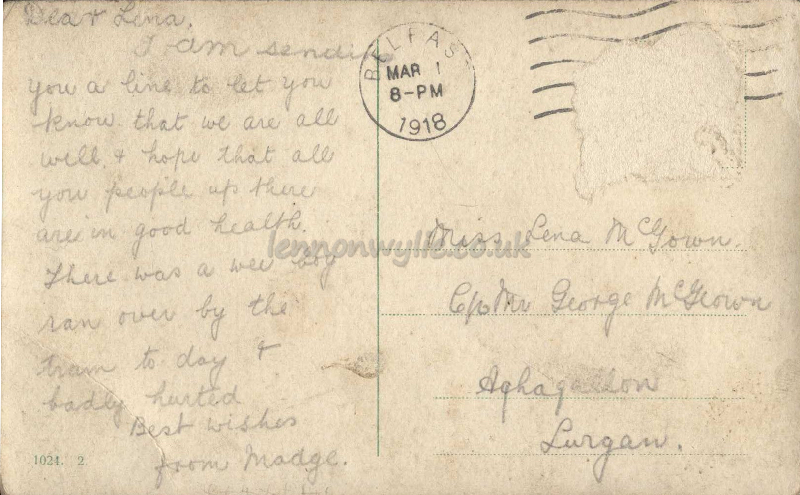 Dear Lena.
I am sending
you a line to let you
know that we are all
well. & hope that all
you people up there
are in good health.
There was a wee boy
ran over by the
tram to day &
badly hurted
Best wishes
from Madge.
1024. 2
BELFAST
MAR 1
8-PM
1918
lennonwylie.co.uk
Miss Lena McGown.
C/o Mr George McGeown
Aghagallon
Lurgan.